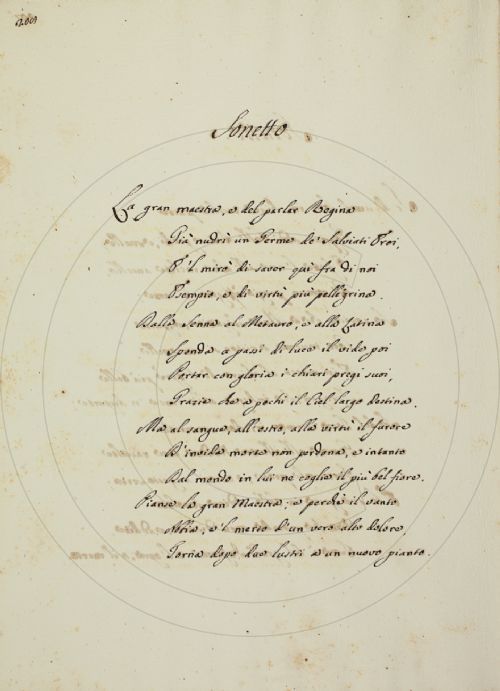 Sonetto
La gran maestra, e del parlar Regina
Già nudrì un Germe de' Salviati Eroi,
E 'l mirò di saver quì fra di noi
Esempio, e di virtù più pellegrina.
Dalla Senna al Metauro, e alla Latina
Sponda a passi di luce il vide poi
Portar con gloria i chiari pregi suoi,
Grazia che a pochi il Ciel largo destina.
Ma al sangue, all'ostro, alla virtù il furore
D'invida morte non perdona, e intanto
Dal mondo in lui ne coglie il più bel fiore.
Pianse la gran Maestra, e perchè il vanto
Abbia, e 'l merto d'un vero alto dolore,
Torna dopo due lustri a un nuovo pianto.